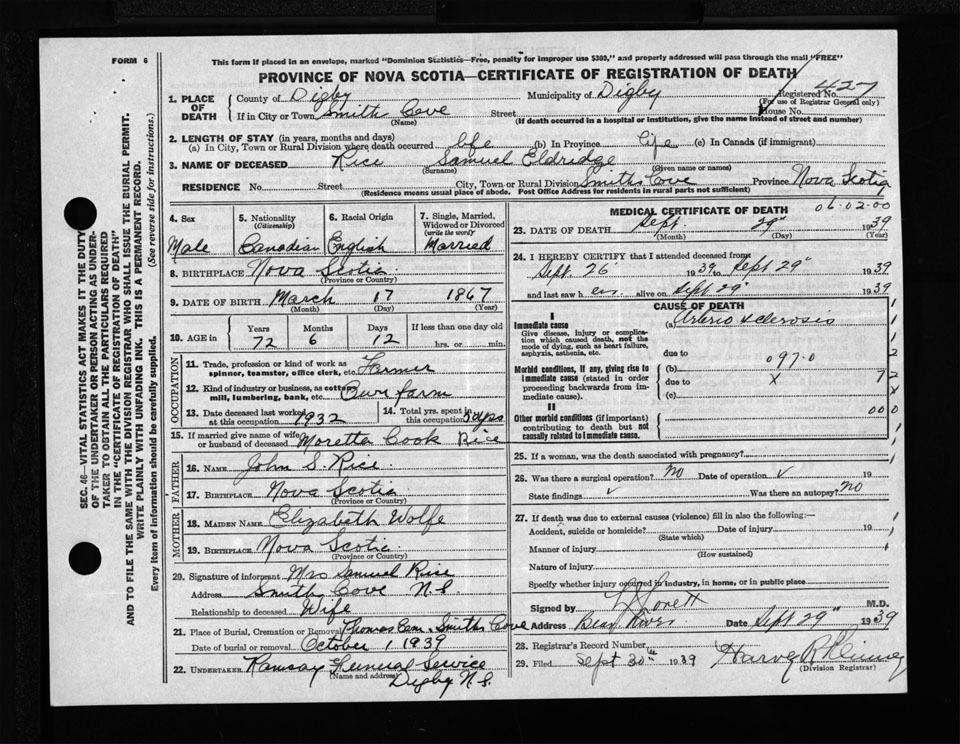 FORM 6
This form if placed in an envelope, marked "Dominion Statistics—Free, penalty for improper use $300," and properly addressed will pass through the mail "FREE"
PROVINCE OF NOVA SCOTIA—CERTIFICATE OF REGISTRATION OF DEATH
Registered No. 427
(For use of Registrar General only)
1. PLACE OF DEATH
County of Digby Municipality of Digby
If in City or Town Smith Cove Street House No.
(Name) (If death occurred in a hospital or institution, give the name instead of street and number)
2. LENGTH OF STAY (in years, months and days)
(a) In City, Town or Rural Division where death occurred life (b) In Province Life (c) In Canada (if immigrant)
3. NAME OF DECEASED Rice Samuel Eldridge
(Surname) (Given name or names)
RESIDENCE No. Street City, Town or Rural Division Smiths Cove Province Nova Scotia
(Residence means usual place of abode. Post Office Address for residents in rural parts not sufficient)
4. Sex
Male
5. Nationality
(Citizenship)
Canadian
6. Racial Origin
English
7. Single, Married, Widowed or Divorced
(write the word)
Married
8. BIRTHPLACE Nova Scotia
(Province or Country)
9. DATE OF BIRTH March 17 1867
(Month) (Day) (Year)
10. AGE in
Years Months Days If less than one day old
72 6 12 hrs. or min.
OCCUPATION
11. Trade, profession or kind of work as spinner, teamster, office clerk, etc. Farmer
12. Kind of industry or business, as cotton mill, lumbering, bank, etc. Own farm
13. Date deceased last worked at this occupation 1932
14. Total yrs. spent in this occupation
15. If married give name of wife or husband of deceased Moretta Cook Rice
FATHER
16. NAME John S. Rice
17. BIRTHPLACE Nova Scotia
(Province or Country)
MOTHER
18. MAIDEN NAME Elizabeth Wolfe
19. BIRTHPLACE Nova Scotia
(Province or Country)
20. Signature of informant Mrs Samuel Rice
Address Smith Cove N.S.
Relationship to deceased Wife
21. Place of Burial, Cremation or Removal Thomas Cem. Smiths Cove
Date of burial or removal October 1 1939
22. UNDERTAKER Ramsay Funeral Service
(Name and address) Digby N.S.
MEDICAL CERTIFICATE OF DEATH 06-02-00
23. DATE OF DEATH Sept. 29" 1939
(Month) (Day) (Year)
24. I HEREBY CERTIFY that I attended deceased from
Sept. 26' 1939 to Sept 29" 1939
and last saw h alive on Sept 29" 1939
CAUSE OF DEATH
I
Immediate cause (a) Arterio sclerosis
Give disease, injury or complication which caused death, not the mode of dying, such as heart failure, asphyxia, asthenia, etc.
due to 097-0
Morbid conditions, if any, giving rise to immediate cause (stated in order proceeding backwards from immediate cause).
(b)
due to X
(c)
II
Other morbid conditions (if important) contributing to death but not causally related to immediate cause.
000
25. If a woman, was the death associated with pregnancy?
26. Was there a surgical operation? No Date of operation ✓ 19
State findings ✓ Was there an autopsy? No
27. If death was due to external causes (violence) fill in also the following:—
Accident, suicide or homicide? Date of injury 19
(State which)
Manner of injury
(How sustained)
Nature of injury
Specify whether injury occurred in industry, in home, or in public place
Signed by Lovett M.D.
Address Bear River Date Sept 29" 1939
28. Registrar's Record Number
29. Filed Sept 30th 1939 Harvey
(Division Registrar)
SEC. 46—VITAL STATISTICS ACT MAKES IT THE DUTY
OF THE UNDERTAKER OR PERSON ACTING AS UNDER-
TAKER TO OBTAIN ALL THE PARTICULARS REQUIRED
IN THE "CERTIFICATE OF REGISTRATION OF DEATH"
AND TO FILE THE SAME WITH THE DIVISION REGISTRAR WHO SHALL ISSUE THE BURIAL PERMIT.
WRITE PLAINLY WITH UNFADING INK. THIS IS A PERMANENT RECORD.
Every item of information should be carefully supplied. (See reverse side for instructions.)